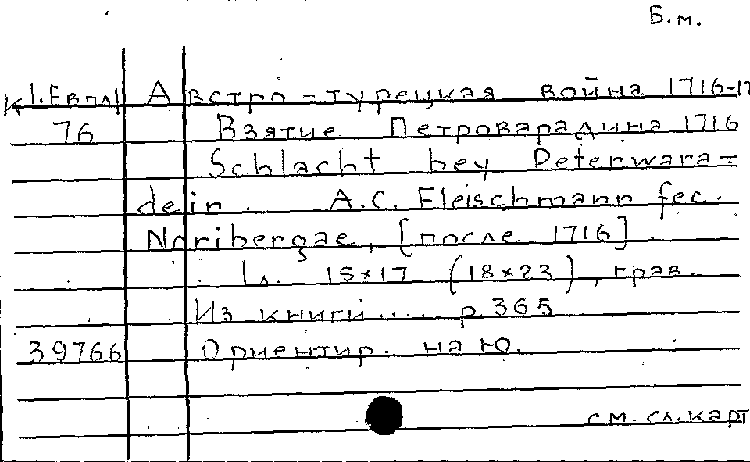 Б.м.
К1.Евпл1 Австро-турецкая война 1716-17
76 Взятие Петроварадина 1716
Schlacht bey Peterwara=
dein. A.C. Fleischmann fec.
Noribergae, [после 1716].
1л. 15×17 (18×23), грав.
Из книги .... p.365
39766 Ориентир. на Ю.
см. сл. карт